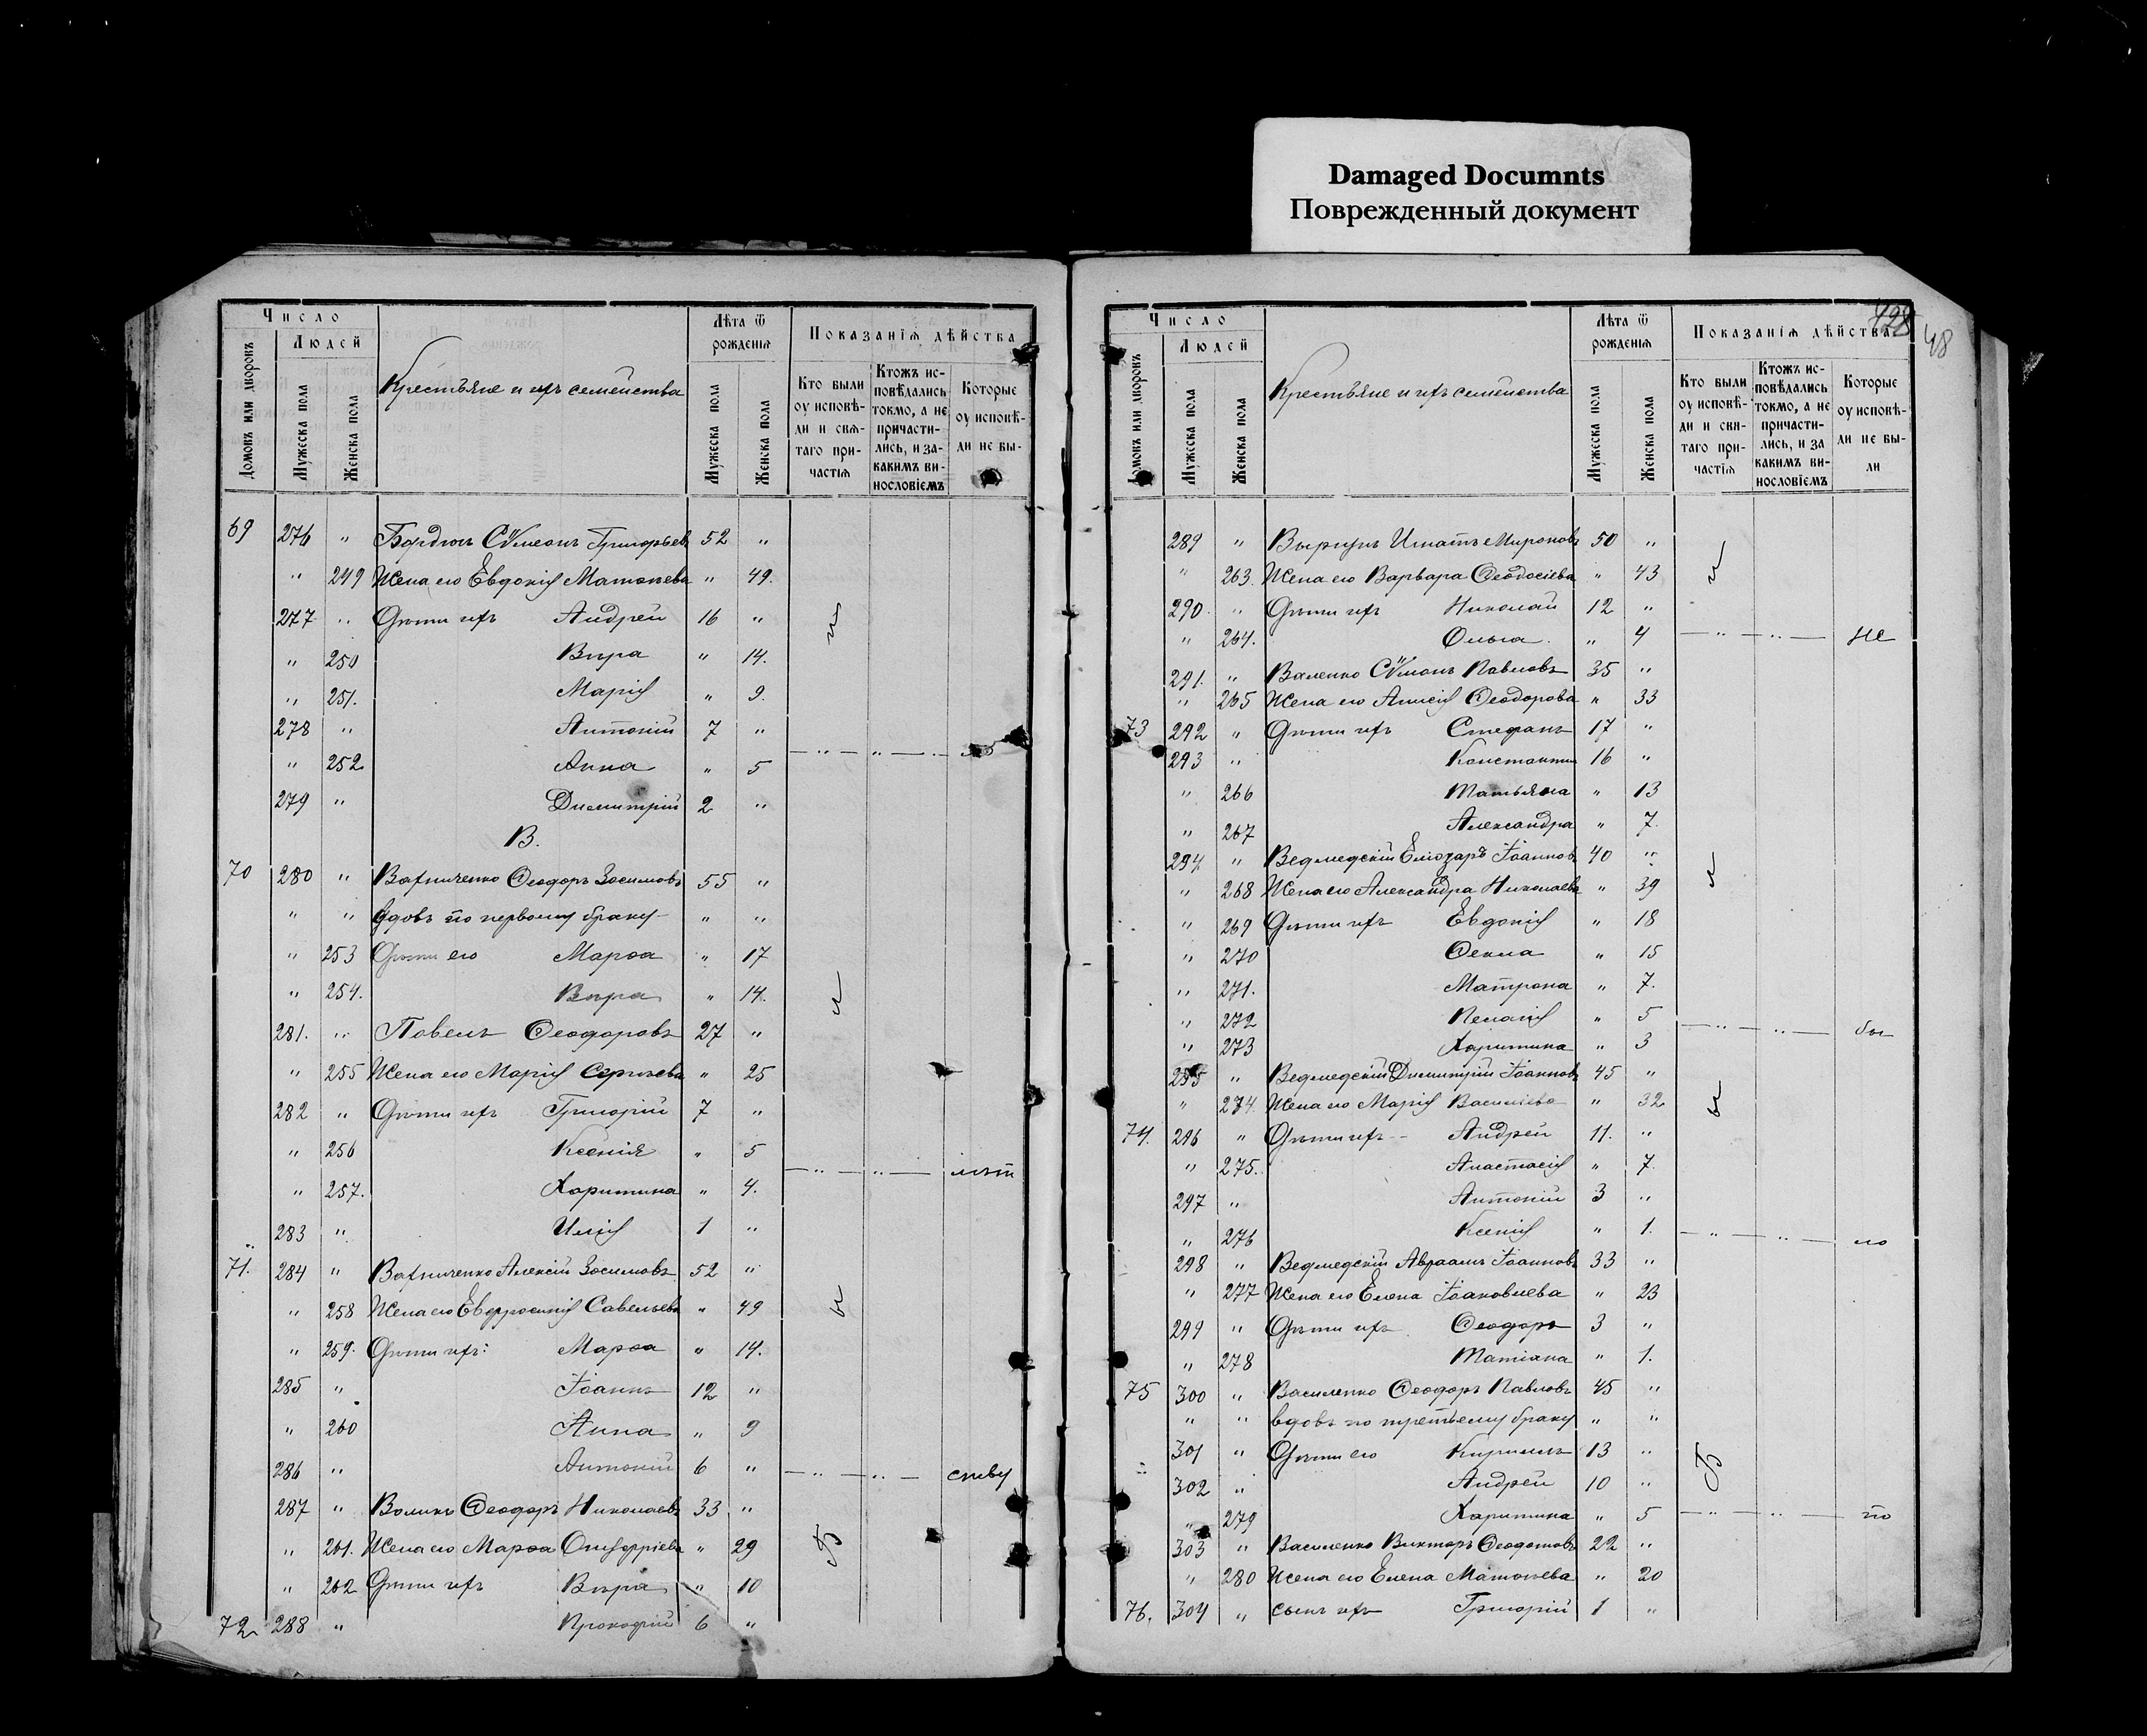 Damaged Documnts
Поврежденный документ
Число
Людей
Домовъ или дворовъ
Мужеска пола
Женска пола
Крестьяне и ихъ семейства
Лѣта ѿ рожденія
Мужеска пола
Женска пола
Показанія дѣйства
Кто были оу исповѣ-ди и свя-таго при-частія
Ктожъ ис-повѣдались токмо, а не причасти-лись, и за-какимъ ви-нословіемъ
Которые оу исповѣ-ди не бы-
69 276 " Симеонъ Григорьевъ 52 "
" 249 Жена его Евдокія Матѳеева " 49.
277 " Дѣти ихъ Андрей 16 "
" 250 Вѣра " 14.
" 251. Марія " 9.
278 " Антоній 7 "
" 252 Анна " 5
279 " Димитрій 2 "
В.
70 280 " Вахниченко Ѳеодоръ Зосимовъ 55 "
" " вдовъ по первому браку " "
" 253 Дѣти его Марѳа " 17
" 254. Вѣра " 14.
281. " Павелъ Ѳеодоровъ 27 "
" 255 Жена его Марія Сергѣева " 25
282 " Дѣти ихъ Григорій 7 "
" 256 Ксенія " 5
" 257. Харитина " 4.
283 " Илія 1 "
71. 284 " Вахниченко Алексій Зосимовъ 52 "
" 258 Жена его Евфросинія Савельева " 49
" 259. Дѣти ихъ: Марѳа " 14.
285 " Іоаннъ 12 "
" 260 Анна " 9
286 " Антоній 6 "
287 " Воликъ Ѳеодоръ Николаевъ 33 "
" 261. Жена его Марѳа Онуфріева " 29
" 262 Дѣти ихъ Вѣра " 10
72 288 " Прокофій 6 "
428
48
Число
Людей
Домовъ или дворовъ
Мужеска пола
Женска пола
Крестьяне и ихъ семейства
Лѣта ѿ рожденія
Мужеска пола
Женска пола
Показанія дѣйства
Кто были оу исповѣ-ди и свя-таго при-частія
Ктожъ ис-повѣдались токмо, а не причасти-лись, и за какимъ ви-нословіемъ
Которые оу исповѣ-ди не бы-ли
289 " Игнатъ Мироновъ 50 "
" 263. Жена его Варвара Ѳеодосіева " 43
290. " Дѣти ихъ Николай 12 "
" 264. Ольга " 4 не
291. " Василенко Симеонъ Павловъ 35 "
" 265 Жена его Анисія Ѳеодорова " 33
73 292 " Дѣти ихъ Стефанъ 17 "
293 " Константинъ 16 "
" 266 Татьяна " 13
" 267 Александра " 7.
294 " Ведмедскій Елиазаръ Іоанновъ 40 "
" 268 Жена его Александра Николаева " 39
" 269 Дѣти ихъ Евдокія " 18
" 270 Ѳекла " 15
" 271. Матрона " 7.
" 272 Пелагія " 5 бы
" 273 Харитина " 3
295 " Ведмедскій Димитрій Іоанновъ 45 "
" 274. Жена его Марія Василіева " 32
74. 296 " Дѣти ихъ Андрей 11. "
" 275. Анастасія " 7.
297 " Антоній 3 "
" 276 Ксенія " 1. ло
298 " Ведмедскій Авраамъ Іоанновъ 33 "
" 277 Жена его Елена Іаковлева " 23
299 " Дѣти ихъ Ѳеодоръ 3 "
" 278 Татіана " 1.
75 300 " Василенко Ѳеодоръ Павловъ 45 "
" " вдовъ по третьему браку " "
301 " Дѣти его Кириллъ 13 "
302 " Андрей 10 "
" 279 Харитина " 5 по
303 " Василенко Викторъ Ѳеодотовъ 22 "
" 280 Жена его Елена Матѳеева " 20
76. 304 " сынъ ихъ Григорій 1 "